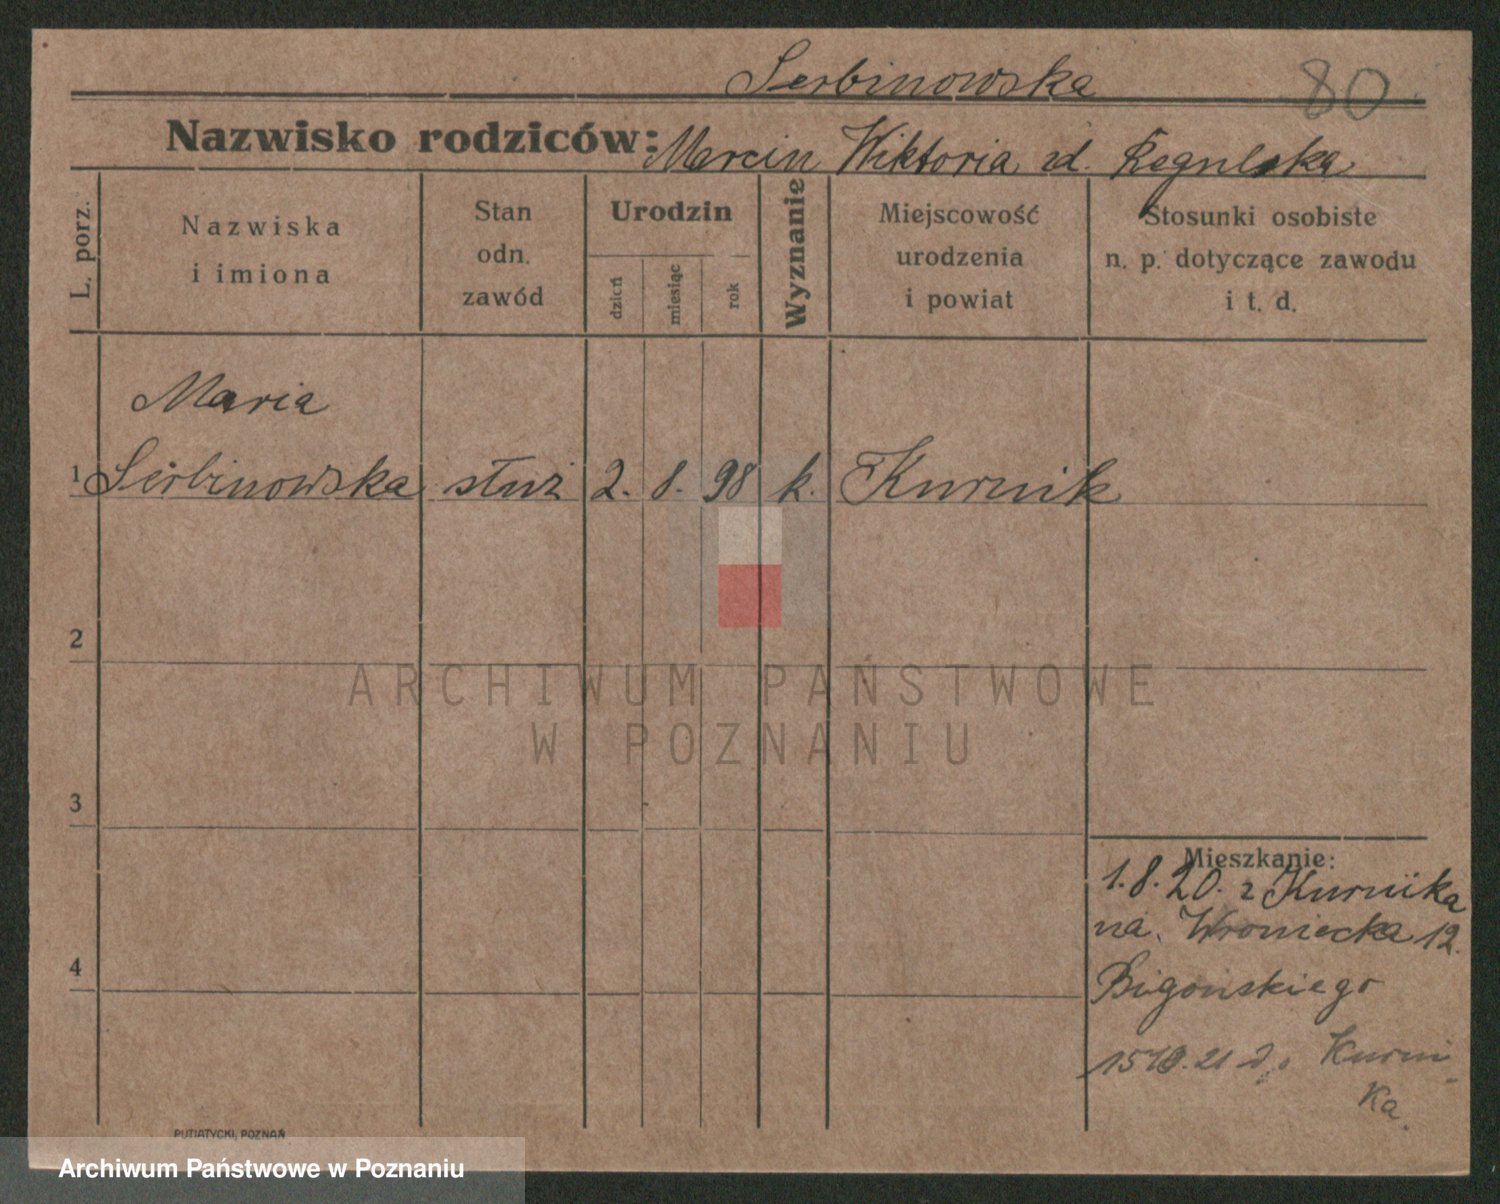 Serbinowska 80
Nazwisko rodziców: Marcin Wiktoria zd. Regulska
L. porz.
Nazwiska
i imiona
Stan
odn.
zawód
Urodzin
dzień
miesiąc
rok
Wyznanie
Miejscowość
urodzenia
i powiat
Stosunki osobiste
n. p. dotyczące zawodu
i t. d.
Maria
1 Serbinowska służ 2. 8. 98 k. Kurnik
2
ARCHIWUM PAŃSTWOWE
W POZNANIU
3
Mieszkanie:
1.8.20. z Kurnika
na Wroniecka 12.
4
21 do Kurni-
ka.
PUTIATYCKI, POZNAŃ
Archiwum Państwowe w Poznaniu